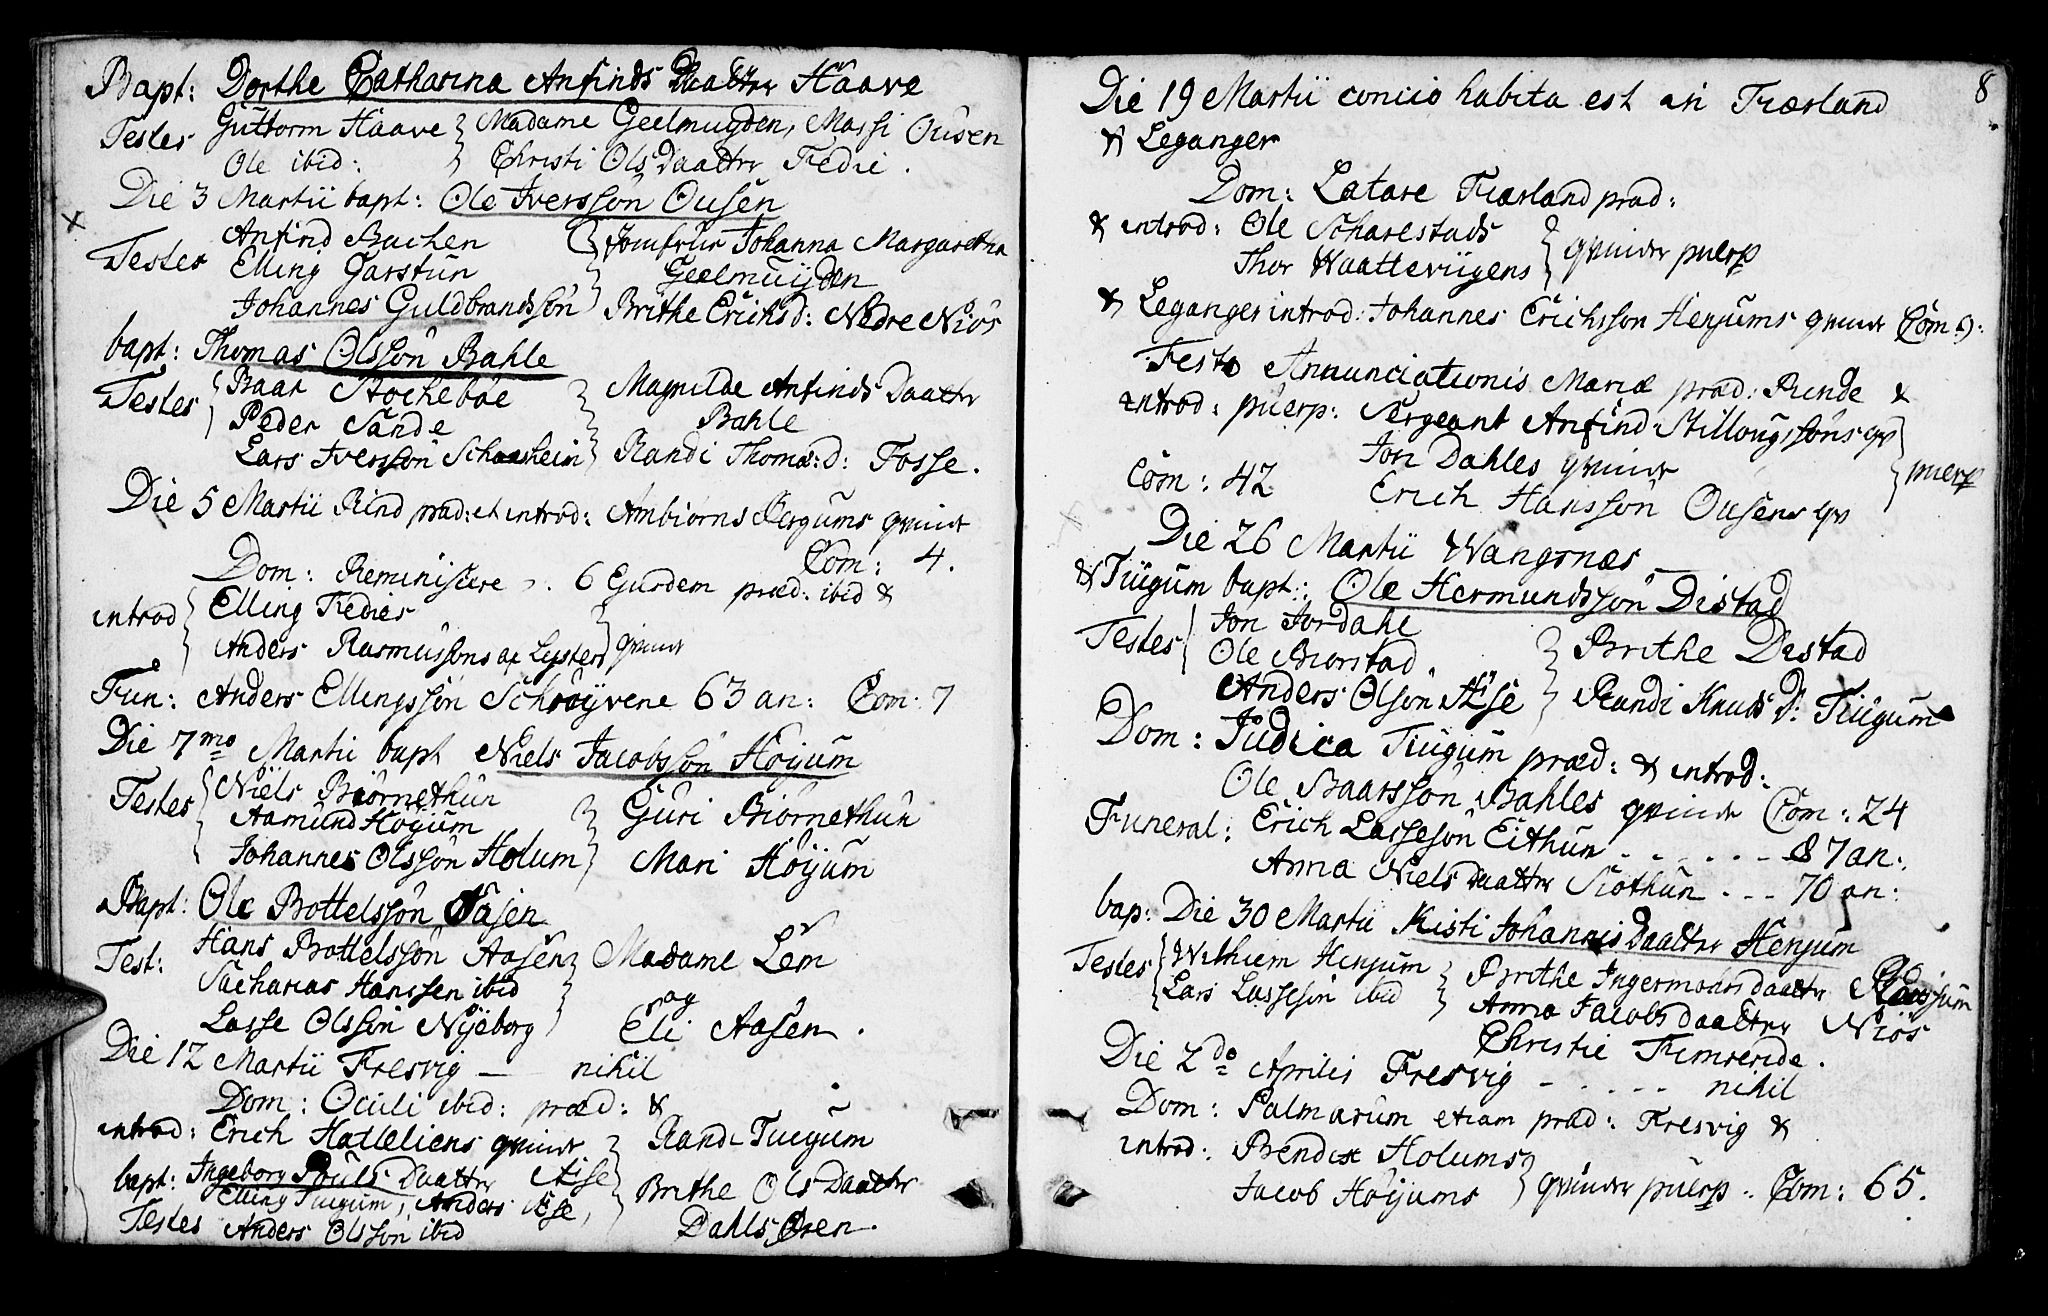 Bapt: Dorthe Catharina Anfinds Daatter Haave
Testes Guttorm Haave } Madame Geelmuyden, Massi Ousen
Ole ibid: } Christi Ols Daatter Fedie.
Die 3 Martii bapt: Ole Iversson Ousen
Testes Anfind Bachen } Jomfrue Johanna Margaretha
Elling Garstun Geelmuijden
Johannes Guldbrandsson } Brithe Erichsd: Nedre Niøs
bapt: Thomas Olsson Bahle
Testes { Baar Stochebøe } Magnilde Anfinds Daatter
Peder Sande Bahle
Lars Iversson } Randi Thomæ:d: Fosse.
Die 5 Martii Rind præd: et introd: Ambiørns Bergums qvinde
Com: 4.
Dom: Reminiscere 6 Gurdem præd: ibid &
introd { Elling Fedies
Anders Rasmussons af Lyster } qvinde
Fun: Anders Ellingsson Schrøyvene 63 an: Com: 7
Die 7mo Martii bapt Niels Jacobsson Høyum
Testes { Niels Biørnethun } Guri Biørnethun
Aamund Høyum
Johannes Olsson Holum } Mari Høyum
Bapt: Ole Bottelsson Aasen
Test: Hans Bottelsson Aasen } Madame Lem
Sacharias Hanssen ibid og
Lasse Olsson Nyeborg } Eli Aasen.
Die 12 Martii Fresvig — nihil
Dom: Oculi ibid: præd: &
introd: Erich Hatleliens qvinde } Randi Tuegum
bapt: Ingeborg Pouls Daatter Aise
Elling Tuegum, Anders Aise, } Brithe Ols Daatter
Testes Anders Olsson ibid Dahls Øren.
8
Die 19 Martii concio habita est in Fiærland
& Leganger
Dom: Lætare Fiærland præd:
& introd: Ole Scharestads
Thor Waattevigens } qvinder puerp
& Leganger introd: Johannes Erichsson Henjums qvinde Com 9:
Festo Annunciationis Mariæ præd: Rinde &
introd: puerp: Sergeant Anfind Stillougssons qv
Jon Dahles qvinde
Com: 42 Erich Hansson Ousens qv } puerp
Die 26 Martii Wangsnæs
& Tiugum bapt: Ole Hermundsson Distad
Testes { Jon Jordahl } Brithe Distad
Ole Biørstad.
Anders Olson Aise } Randi Knuds D: Tiugum
Dom: Judica Tiugum præd: & introd:
Ole Baarsson Bahles qvinde Com: 24
Funeral: Erich Lasseson Eithun - - - - - - 87 an:
Anna Niels Daatter Slothun - - - 70 an:
bap: Die 30 Martii Kisti Johannis Daatter Henjum
Testes { Wilhiem Henjum } Brithe Ingermoders Daatter
Lars Lasseson ibid } Anna Jacobs Daatter Niøs
Christie Fimreride.
Die 2do Aprilis Fresvig - - - - - nihil
Dom: Palmarum etiam præd: Fresvig &
introd: Bendix Holums
Jacob Høijums } qvinder puerp: Com: 65.